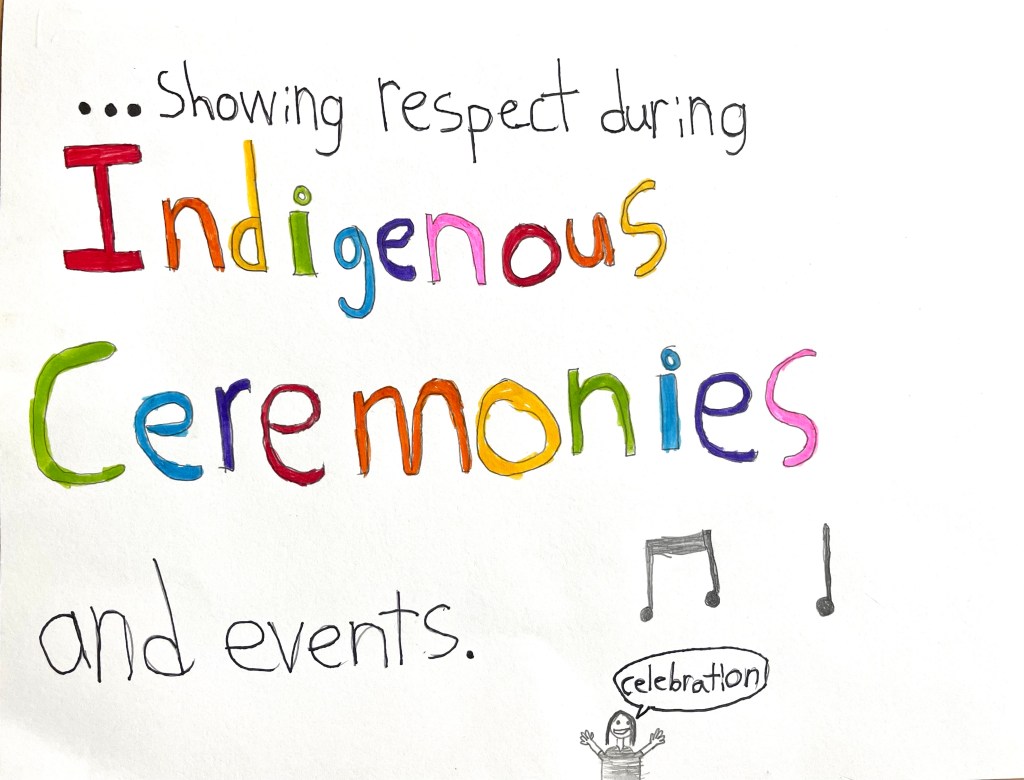 ...Showing respect during
Indigenous
Ceremonies
and events.
celebration